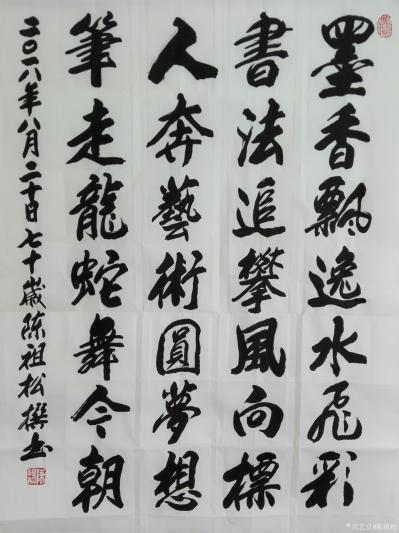 墨香飄逸水飛彩
書法追攀風向標
人奔藝術圓夢想
筆走龍蛇舞今朝
二〇一八年八月二十日七十歲陈祖松撰书